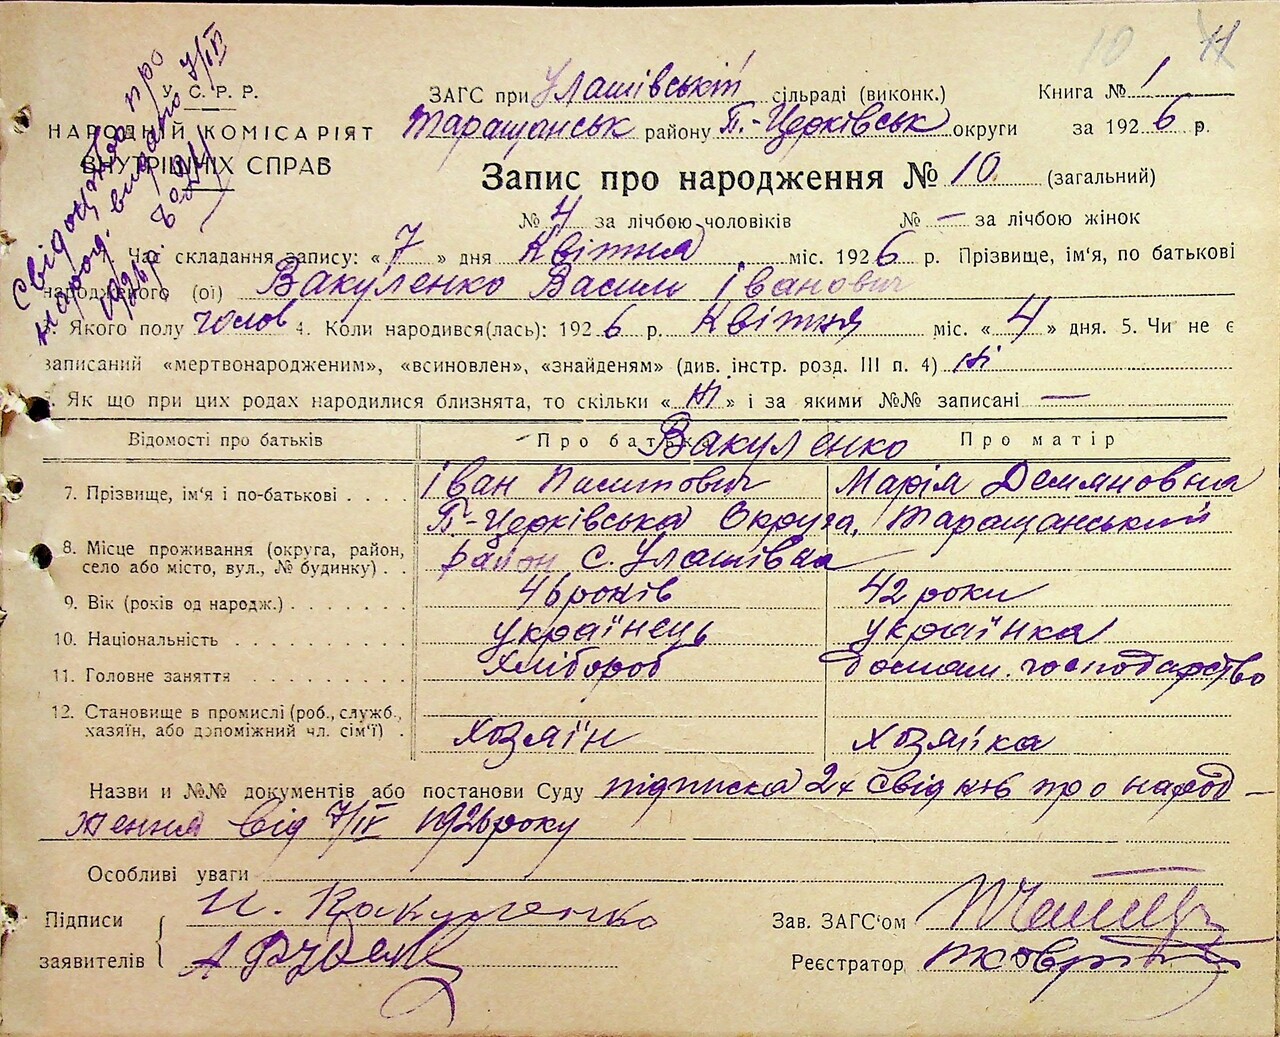 10 11
Свідоцтво про
народ. видано 7/IV
1926 р.
У. С. Р. Р.
НАРОДНІЙ КОМІСАРІЯТ
ВНУТРІШНІХ СПРАВ
ЗАГС при Улашівській сільраді (виконк.) Книга № 1
Таращанськ району Б.-Церківськ округи за 1926 р.
Запис про народження № 10. (загальний)
№ 4 за лічбою чоловіків № — за лічбою жінок
Час складання запису: «7» дня Квітня міс. 1926 р. Прізвище, ім'я, по батькові
народженого (ої) Вакуленко Василь Іванович
Якого полу чолов 4. Коли народився(лась): 1926 р. Квітня міс. «4» дня. 5. Чи не є
записаний «мертвонародженим», «всиновлен», «знайденям» (див. інстр. розд. III п. 4) ні
Як що при цих родах народилися близнята, то скільки « ні » і за якими №№ записані —
Відомості про батьків Про батька Вакуленко Про матір
7. Прізвище, ім'я і по-батькові . . . . Іван Марія Демяновна
Б-Церківська Округа, Таращанський
8. Місце проживання (округа, район, район с. Улашівка
село або місто, вул., № будинку) . .
9. Вік (років од народж.) . . . . . . . . 46 років 42 роки
10. Національність . . . . . . . . . . . українець українка
11. Головне заняття . . . . . . . . . . . Хлібороб домаш. господарство
12. Становище в промислі (роб., служб.,
хазяїн, або допоміжний чл. сім'ї) . Хозяїн Хозяйка
Назви и №№ документів або постанови Суду підписка 2х свідків про народ-
ження від 7/IV 1926 року
Особливі уваги
Підписи И. Вакуленко Зав. ЗАГС'ом
заявителів Реєстратор